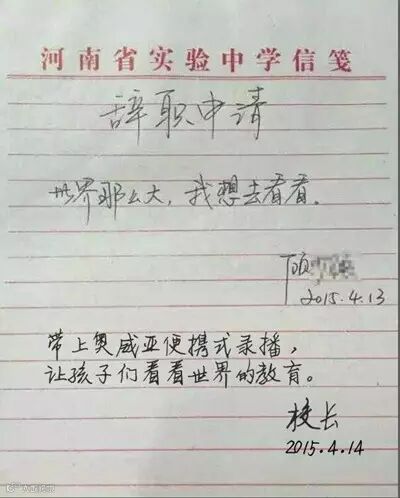 河南省实验中学信笺
辞职申请
世界那么大，我想去看看。
顾
2015.4.13
带上奥威亚便携式录播，
让孩子们看看世界的教育。
校长
2015.4.14